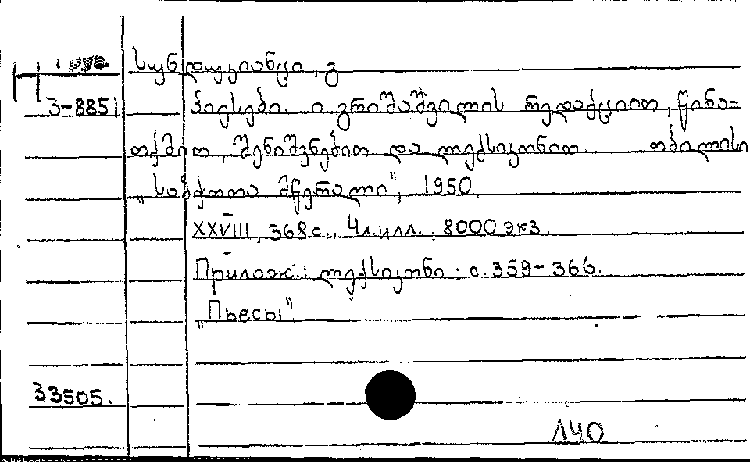 სუნდუკიანცი, გ
3-8851 პიესები. ი. გრიშაშვილის რედაქციით, წინა=
თქმით, შენიშვნებით და ლექსიკონით. თბილისი
„საბჭოთა მწერალი", 1950
XXVIII, 368 с., 4 л. илл. 8000 экз.
Прилож.: ლექსიკონი: с. 359-366.
„Пьесы"
33505.
140